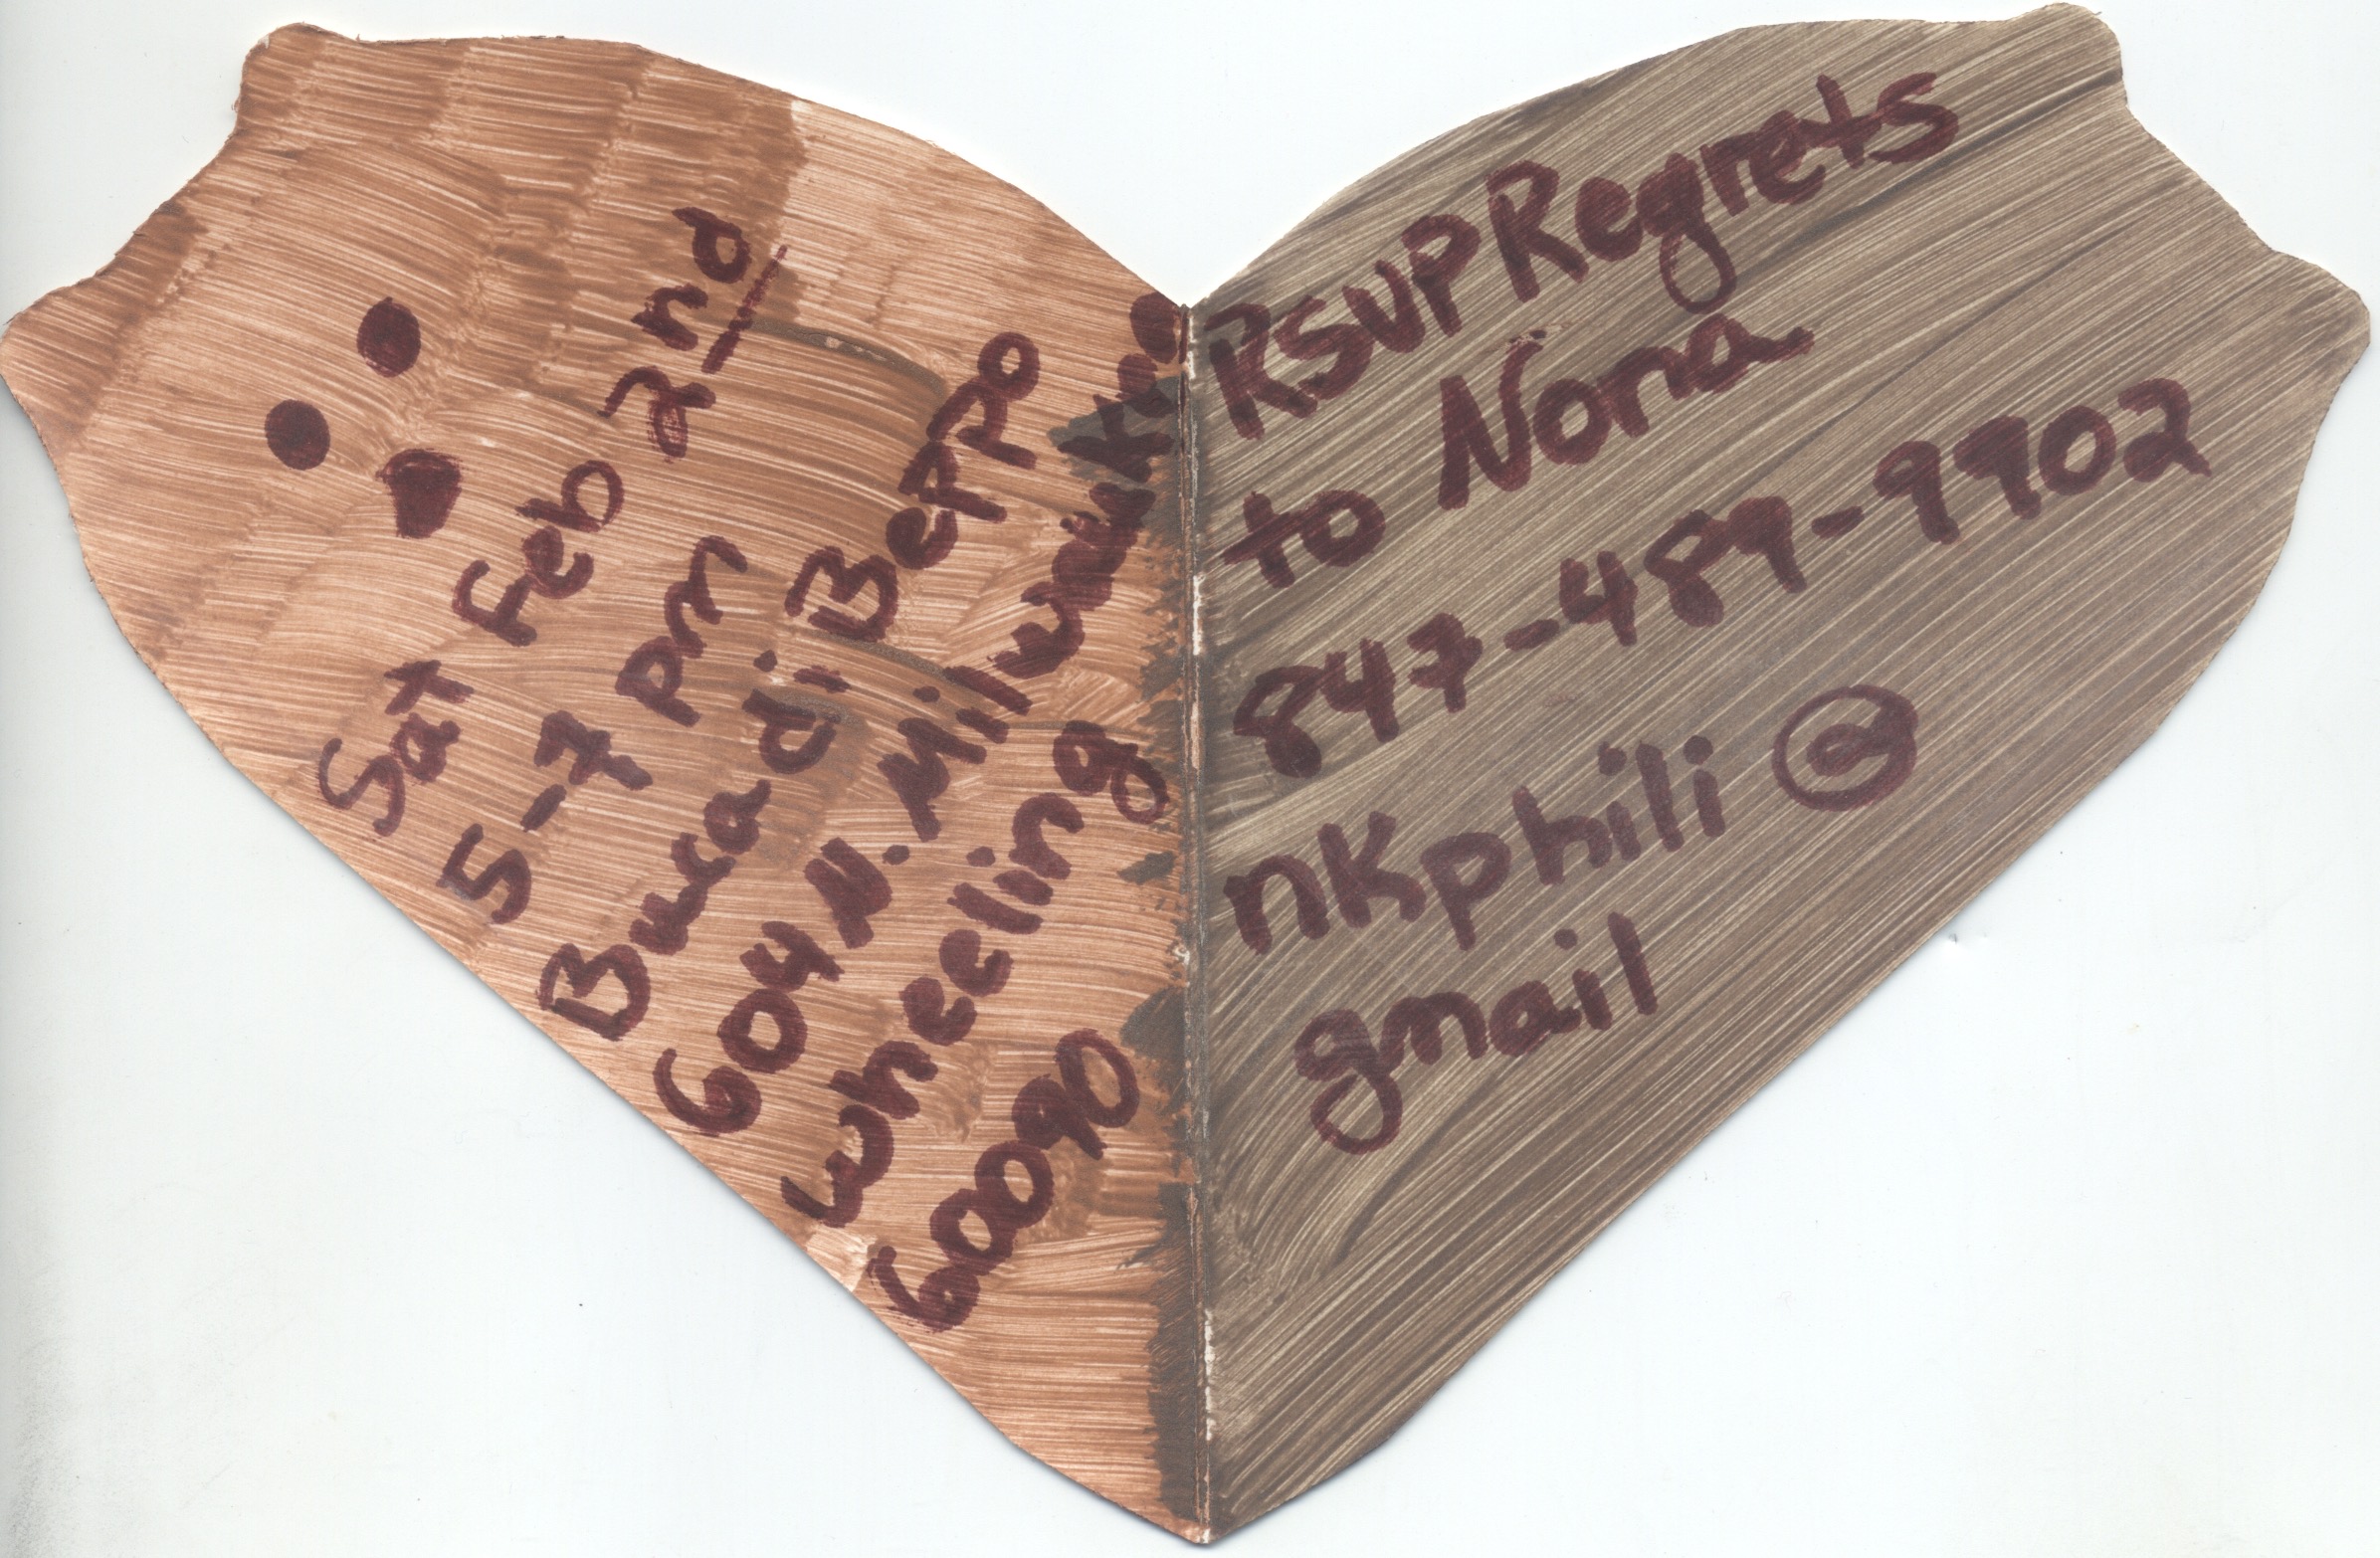 Sat Feb 2nd
5-7 pm
Buca di Beppo
604 N. Milwaukee
Wheeling
60090
RSVP Regrets
to Nona
847-489-9902
nKphili @
gmail